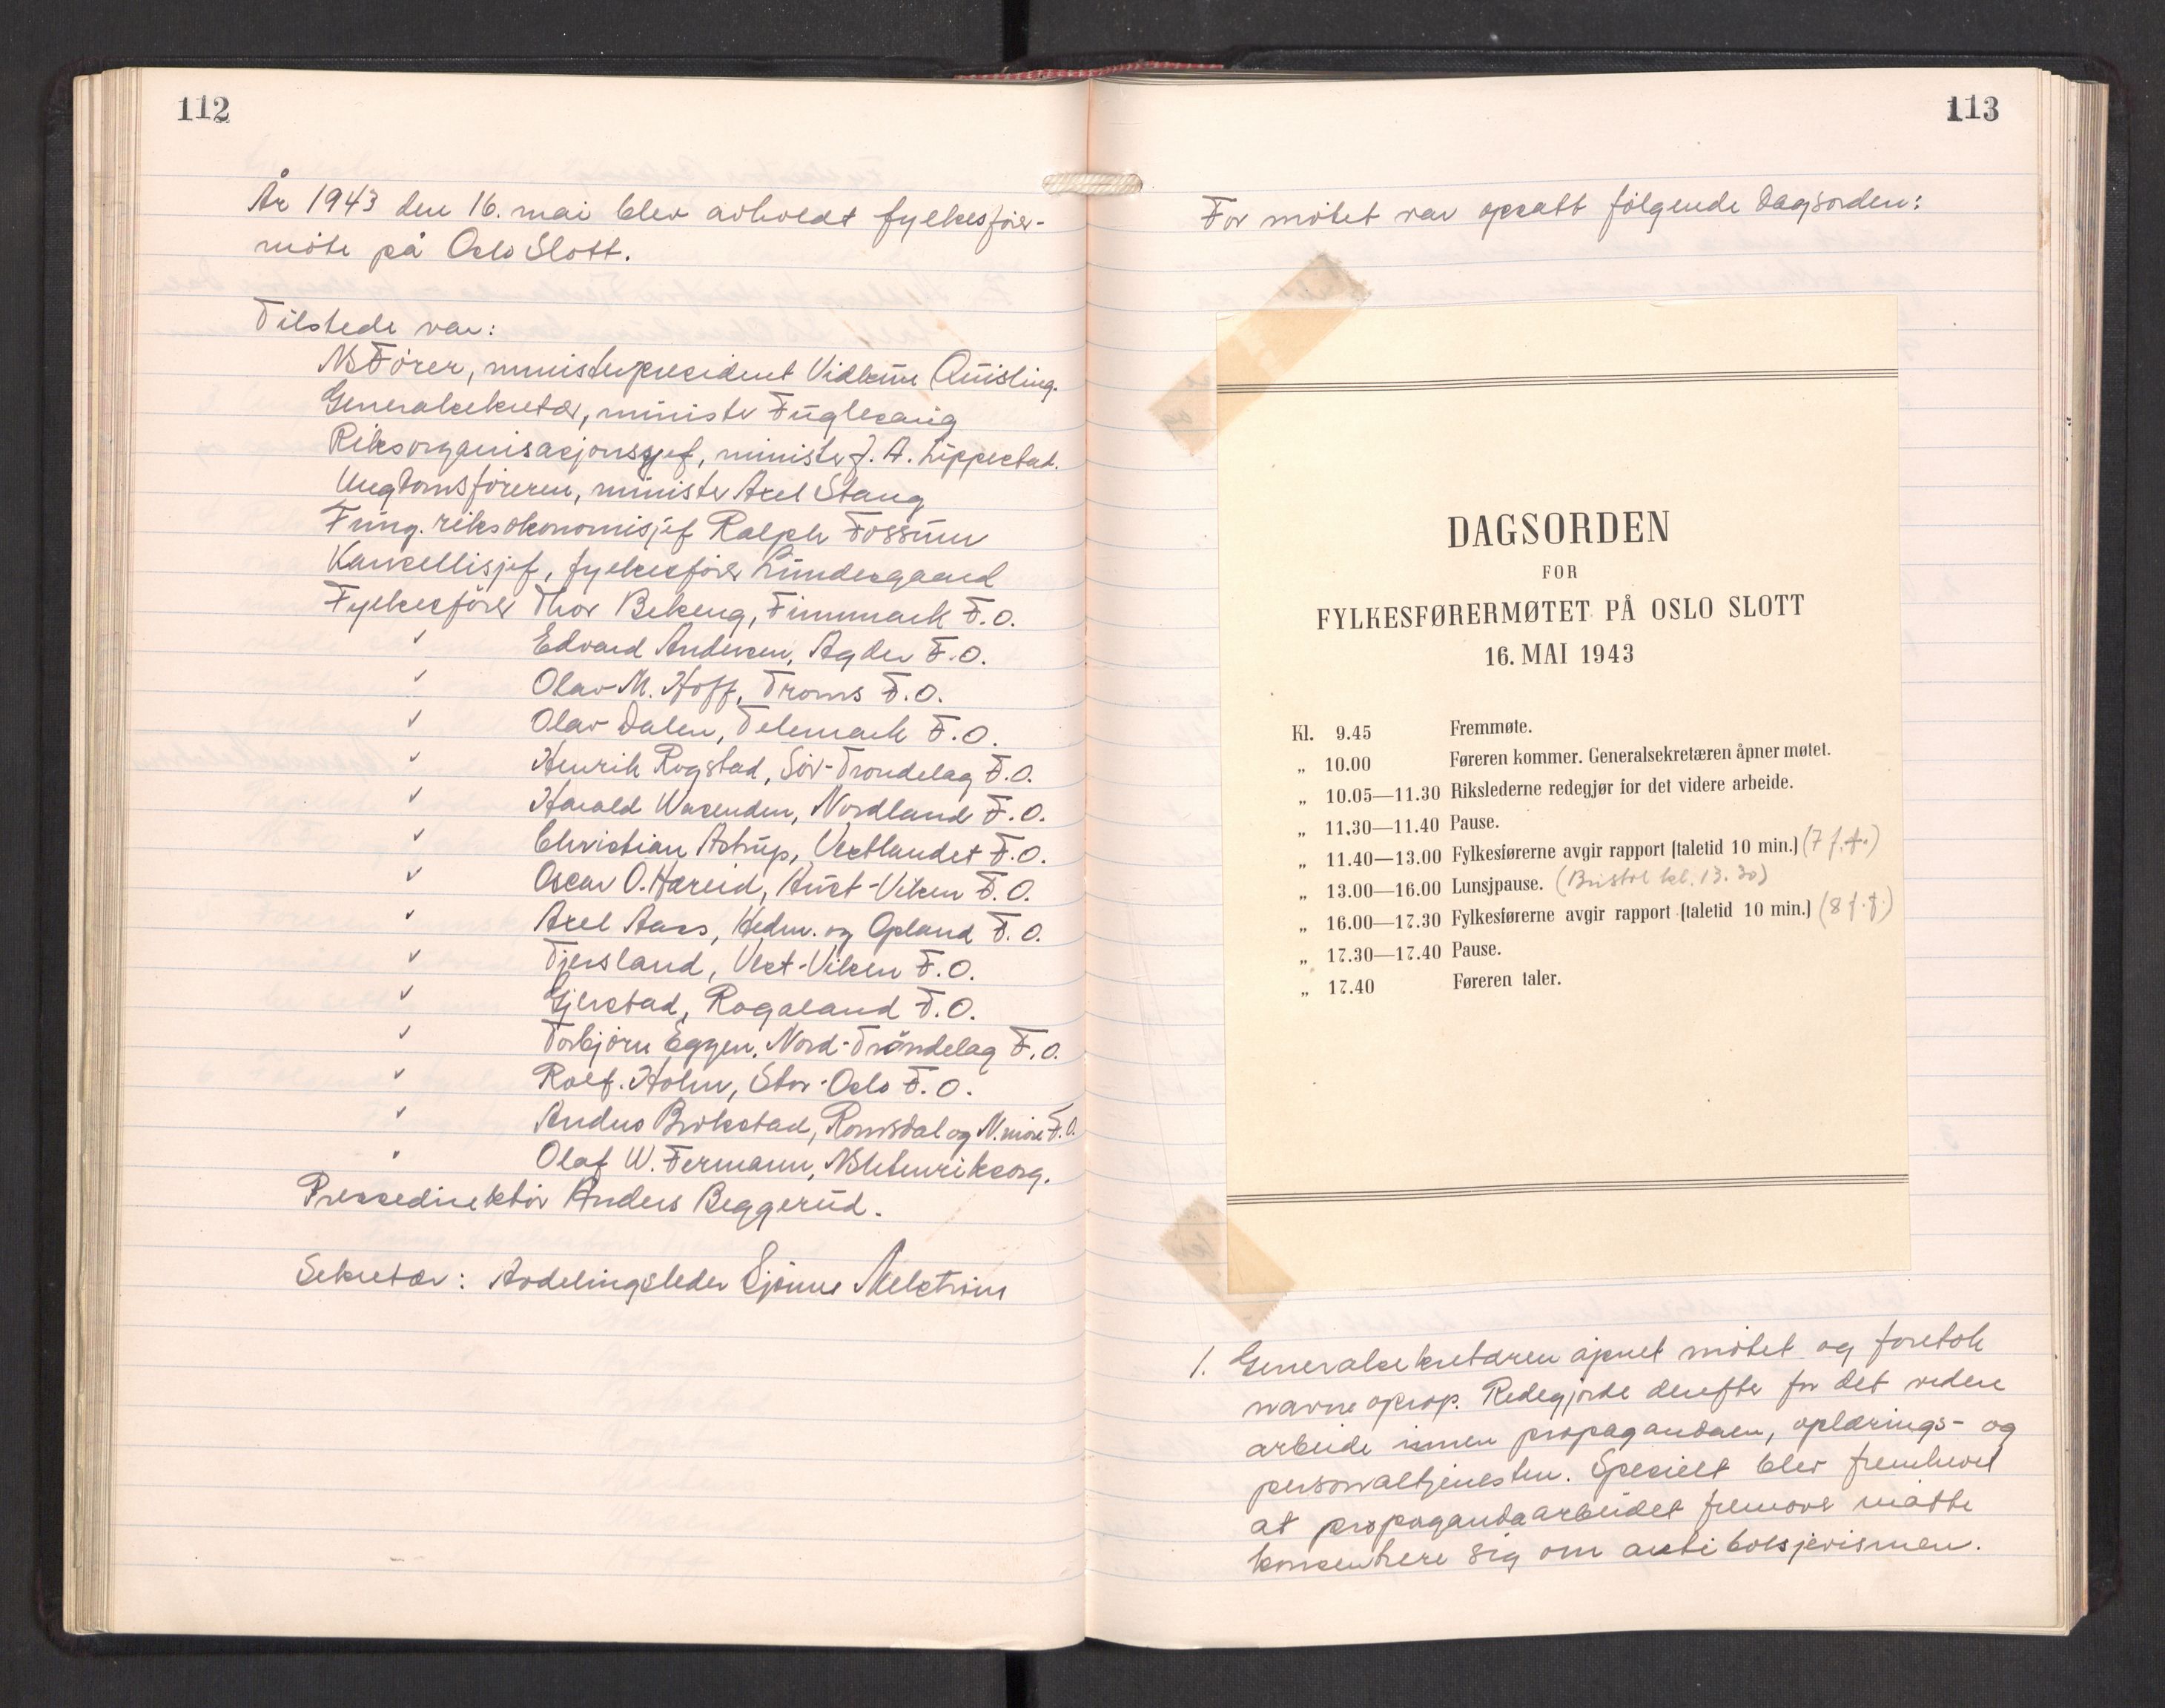 112
År 1943 den 16. mai blev avholdt fylkesfører-
møte på Oslo Slott.
Tilstede var:
NS Fører, ministerpresident Vidkun Quisling.
Generalsekretær, minister Fuglesang
Riksorganisasjonssjef, minister J. A. Lippestad.
Ungdomsføreren, minister Axel Stang
Fung. riksøkonomisjef Ralph Fossum
Kansellisjef, fylkesfører Lundesgaard
Fylkesfører Thor Bekeng, Finnmark F.O.
" Edvard Andersen, Agder F.O.
" Olav M. Hoff, Troms F.O.
" Olav Dalen, Telemark F.O.
" Henrik Rogstad, Sør-Trøndelag F.O.
" Harald Wasenden, Nordland F.O.
" Christian Astrup, Vestlandet F.O.
" Oscar O. Hareid, Aust-Viken F.O.
" Axel Aass, Hedm. og Opland F.O.
" Tjersland, Vest-Viken F.O.
" Gjerstad, Rogaland F.O.
" Torbjørn Eggen, Nord-Trøndelag F.O.
" Rolf Holm, Stor-Oslo F.O.
" Anders Brokstad, Romsdal og N.møre F.O.
" Olaf W. Fermann, NS Utenriksorg.
Pressedirektør Anders Beggerud.
Sekretær: Avdelingsleder Sjønne Melstrøm
113
For møtet var opsatt følgende dagsorden:
DAGSORDEN
FOR
FYLKESFØRERMØTET PÅ OSLO SLOTT
16. MAI 1943
Kl. 9.45 Fremmøte.
„ 10.00 Føreren kommer. Generalsekretæren åpner møtet.
„ 10.05—11.30 Rikslederne redegjør for det videre arbeide.
„ 11.30—11.40 Pause.
„ 11.40—13.00 Fylkesførerne avgir rapport (taletid 10 min.) (7 f.f.)
„ 13.00—16.00 Lunsjpause. (Bristol kl. 13.30)
„ 16.00—17.30 Fylkesførerne avgir rapport (taletid 10 min.) (8 f.f.)
„ 17.30—17.40 Pause.
„ 17.40 Føreren taler.
1. Generalsekretæren åpnet møtet og foretok
navneoprop. Redegjorde derefter for det videre
arbeide innen propagandaen, oplærings- og
personaltjenesten. Specielt blev fremhevet
at propagandaarbeidet fremover måtte
konsentrere sig om antibolsjevismen.